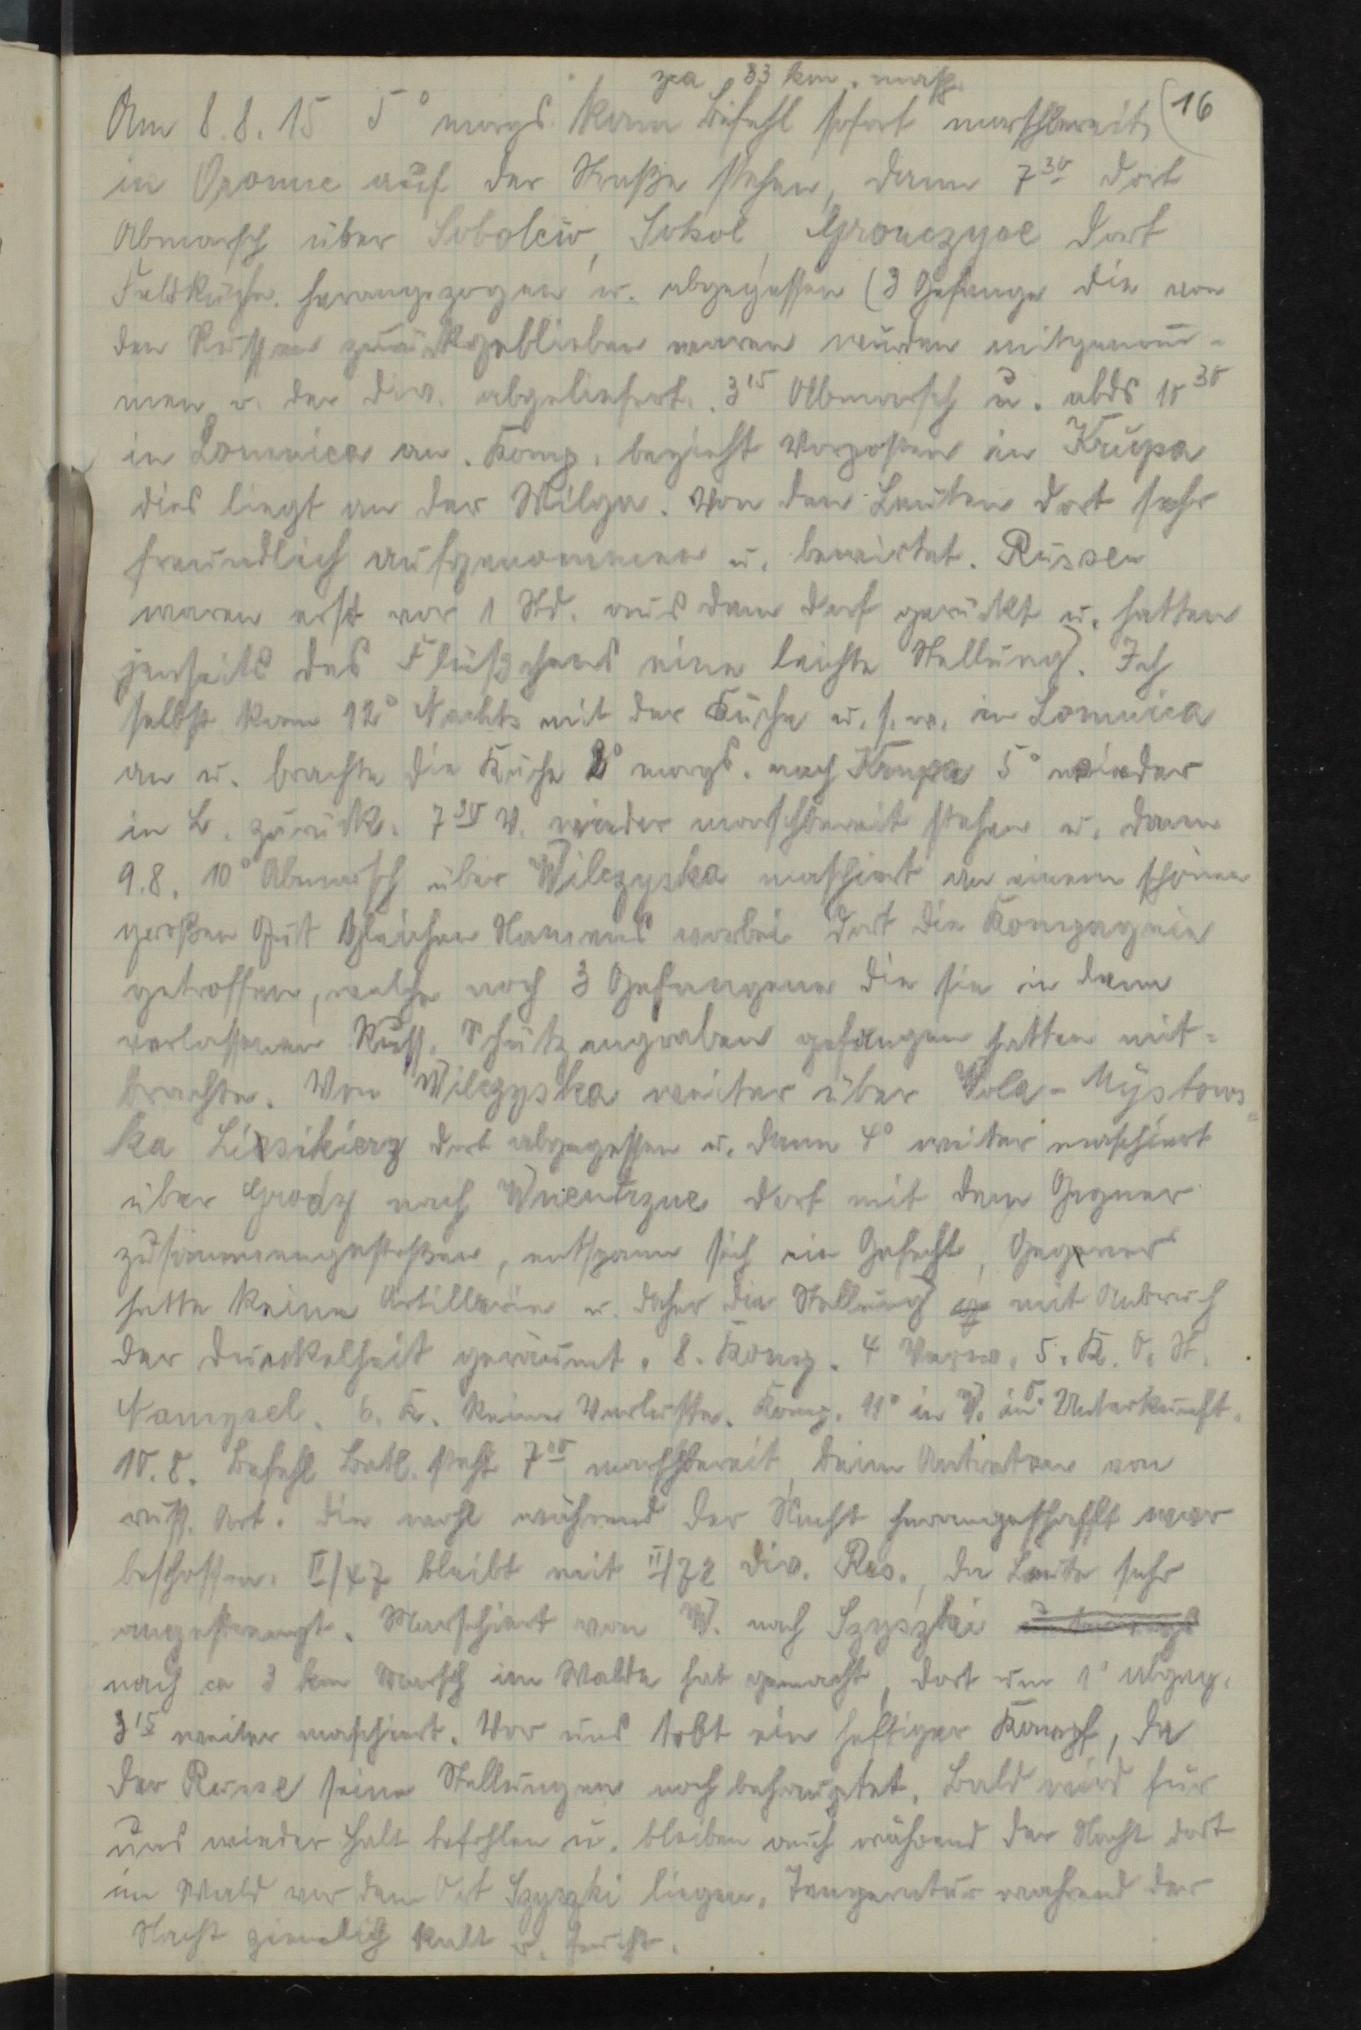 zca 33 km. marsch.
(16
Am 8.8.15 5° morgs. kam Befehl sofort marschbereit
in Oronne auf der Straße stehen, dann 7³⁰ dort
Abmarsch über Sobolew, Sokol, Gronczyce dort
Feldküche herangezogen u. abgegessen (3 Gefange die von
den Russen zurückgeblieben waren wurden mitgenom-
men u. der Div. abgeliefert. 3¹⁵ Abmarsch u. abds 10³⁰
in Lomnica an. Komp. bezieht Vorposten in Krupa
dies liegt an der Wilga. Von den Leuten dort sehr
freundlich aufgenommen u. bewirtet. Russen
waren erst vor 1 Std. aus dem Dorf gerückt u. hatten
jenseits des Flüßchens eine leichte Stellung. Ich
selbst kam 12° Nachts mit der Küche u.s.w. in Lomnica
an u. brachte die Küche 2° morgs. nach Krupa 5° wieder
in L. zurück. 7³⁰ V. wieder marschbereit stehen u. dann
9.8. 10° Abmarsch über Wilczyska maschiert an einem schönen
großen Gut gleichen Namens vorbei dort die Kompagnie
getroffen, welche noch 3 Gefangene die sie in dem
verlassenen Russ. Schützengraben gefangen hatten mit-
brachte. Von Wilczyska weiter über Wola-Mystows-
ka Lisikierz dort abgegessen u. dann 4° weiter maschiert
über Grody nach Wnentrzne dort mit dem Gegner
zusammengestoßen, entspann sich ein Gefecht, Gegner
hatte keine Artillerie u. daher die Stellung mit Anbruch
der Dunkelheit geräumt. 8. Komp. 4 Verw. 5. K. O. St.
Namysl. 6. K. keine Verluste. Komp. 11° in W. in O. Unterkunft.
10.8. Befehl Batl. steht 7¹⁰ marschbereit, beim Antreten von
russ. Art. die wohl während der Nacht herangeschafft war
beschossen. II/47 bleibt mit II/72 Div. Res., da Leute sehr
angestrengt. Marschiert von W. nach Szyszki
nach ca 3 km Marsch im Walde halt gemacht, dort um 1° abgeg.
3¹⁵ weiter maschiert. Vor uns tobt ein heftiger Kampf, da
der Russe seine Stellungen noch behauptet. Bald wird für
uns wieder Halt befohlen u. bleiben auch während der Nacht dort
im Wald vor dem Ort Szyszki liegen. Temperatur während der
Nacht ziemlich kalt u. feucht.